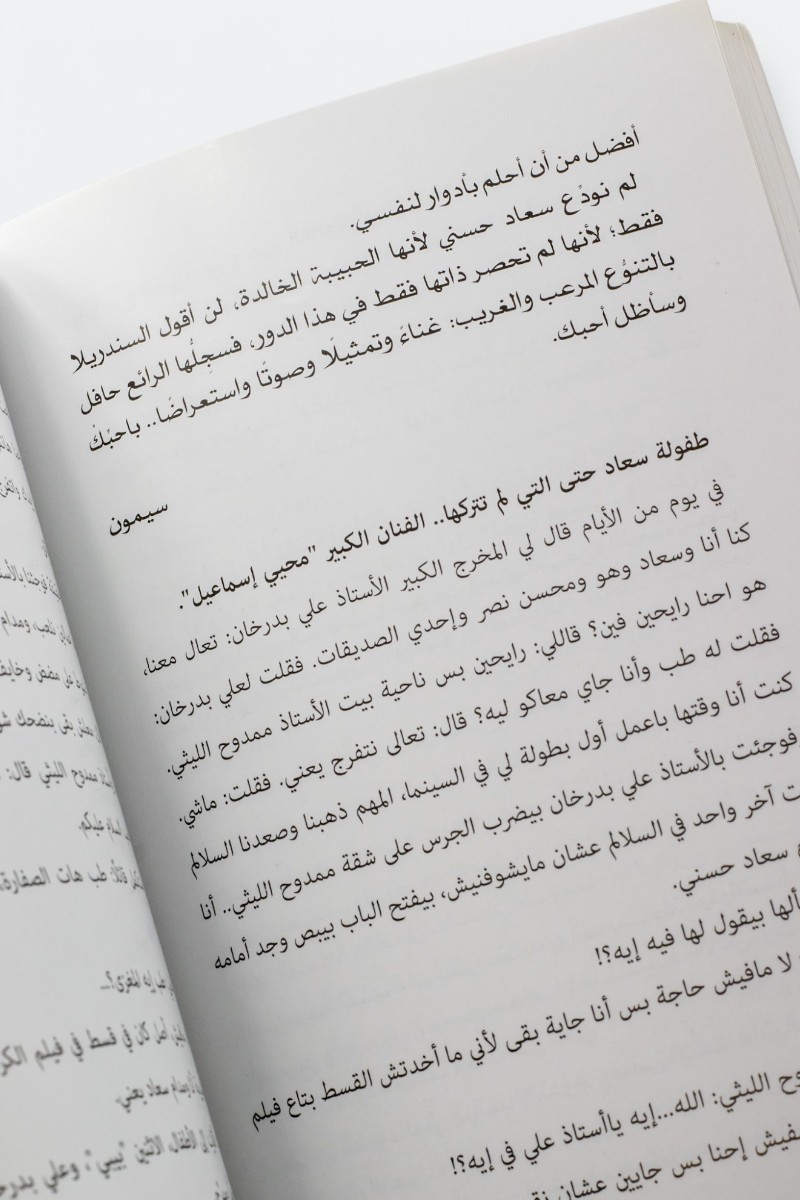 أفضل من أن أحلم بأدوار لنفسي.
لم نودِّع سعاد حسني لأنها الحبيبة الخالدة، لن أقول السندريلا
فقط؛ لأنها لم تحصر ذاتها فقط في هذا الدور، فسجِلُّها الرائع حافل
بالتنوُّع المرعب والغريب: غناءً وتمثيلًا وصوتًا واستعراضًا.. باحبّكْ
وسأظل أحبك.
سيمون
طفولة سعاد حتى التي لم تتركها.. الفنان الكبير "محيي إسماعيل".
في يوم من الأيام قال لي المخرج الكبير الأستاذ علي بدرخان: تعال معنا،
كنا أنا وسعاد وهو ومحسن نصر وإحدي الصديقات. فقلت لعلي بدرخان:
هو احنا رايحين فين؟ قاللي: رايحين بس ناحية بيت الأستاذ ممدوح الليثي.
فقلت له طب وأنا جاي معاكو ليه؟ قال: تعالى نتفرج يعني. فقلت: ماشي.
كنت أنا وقتها باعمل أول بطولة لي في السينما، المهم ذهبنا وصعدنا السلالم
فوجئت بالأستاذ علي بدرخان بيضرب الجرس على شقة ممدوح الليثي.. أنا
آخر واحد في السلالم عشان مايشوفنيش، بيفتح الباب بيبص وجد أمامه
سعاد حسني.
بيقول لها فيه إيه؟!
لا مافيش حاجة بس أنا جاية بقى لأني ما أخدتش القسط بتاع فيلم
الليثي: الله...إيه ياأستاذ علي في إيه؟!
إحنا بس جايين عشان
ممدوح الليثي قال:
السلام عليكم.
طب هات الصفارة،
إيه المغزى؟...
كان في قسط في فيلم
سعاد يعني.
الاثنين "بيبي"، وعلي